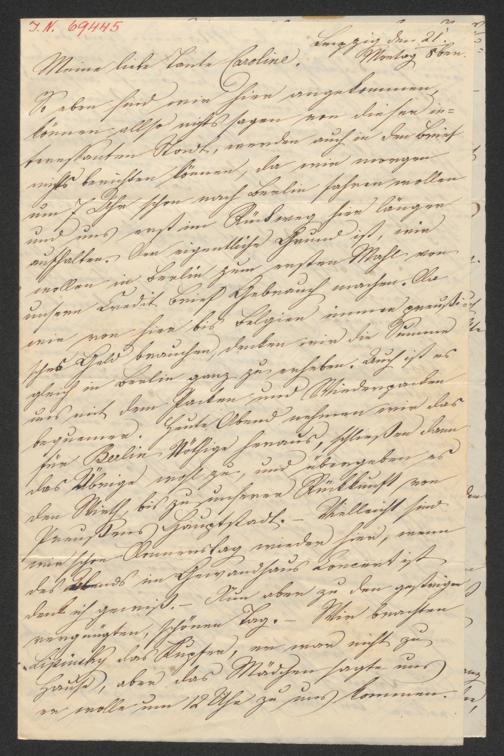 I. N. 69445
Leipzig den 21t.
Montag Aben.
Meine liebe Tante Caroline.
So eben sind wir hier angekommen,
können allso nichts sagen von dieser in=
teressanten Stadt, werden auch in den Brief
nichts berichten können, da wir morgen
um 7 Uhr schon nach Berlin fahren wollen
und uns erst im Rückweg hier länger
aufhalten. Der eigentliche Grund ist, wir
wollen in Berlin zum ersten Mahl von
unsern Credit Brief Gebrauch machen. Da
wir von hier bis Belgien immer preußi
sches Geld brauchen, denken wir die Summe
gleich in Berlin ganz zu erheben. Auch ist es
uns mit dem Packen und Wiederpacken
bequemer. Heute Abend nehmen wir das
für Berlin Nöthige heraus, schließen dann
das Übrige wohl zu, und übergeben es
den Wirth bis zu unserer Rückkunft von
Preußens Hauptstadt. – Vielleicht sind
wir schon Donnerstag wieder hier, wenn
des Abends im Gewandhaus Concert ist
denk ich gewiß. – Nun aber zu den gestrigen
vergnügten, schönen Tag. – Wir brachten
Lipinsky das Kupfer, er war nicht zu
Hause, aber das Mädchen sagte uns
er wolle um 12 Uhr zu uns kommen. –